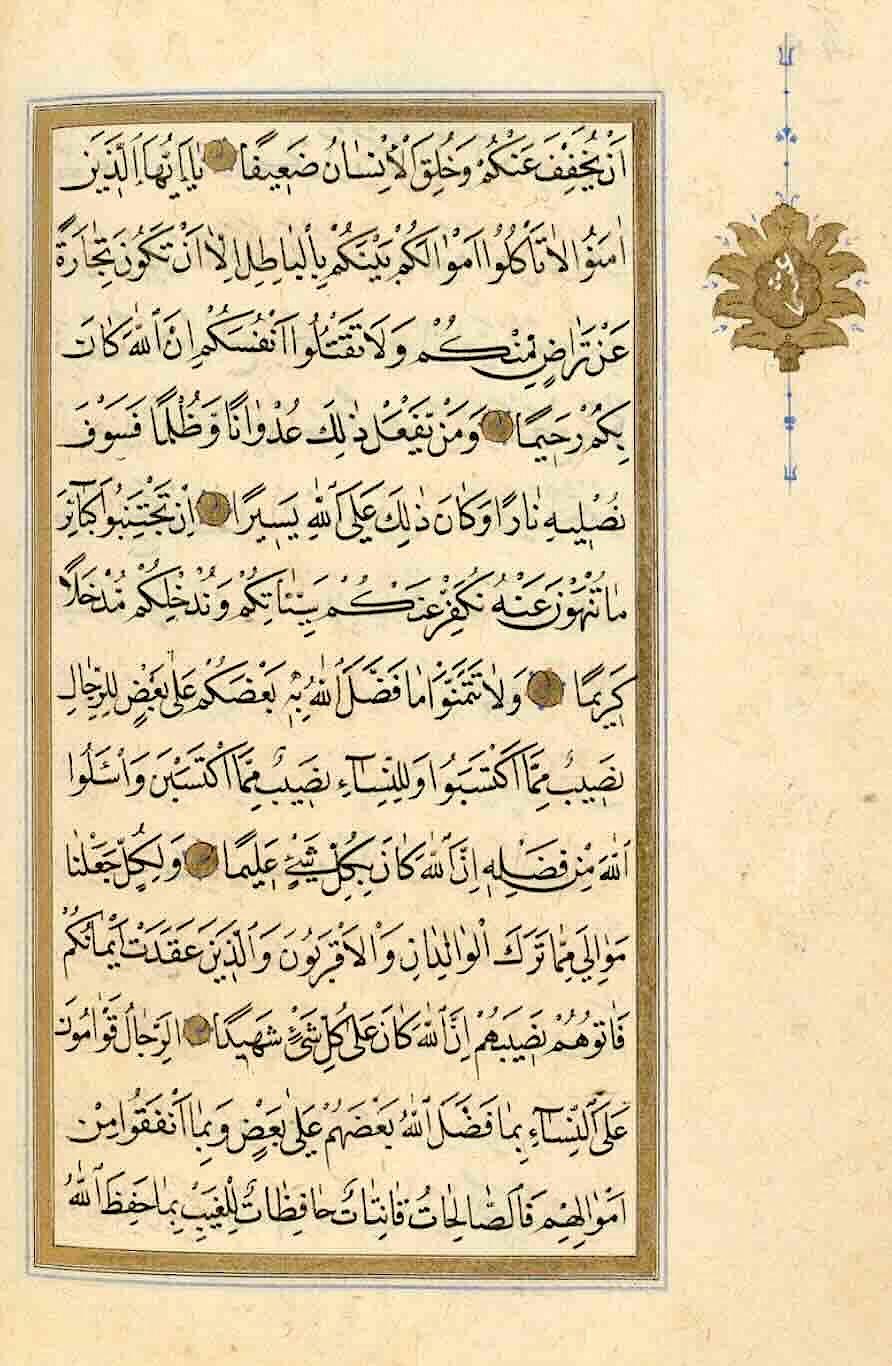 اَنْ يُخَفِّفَ عَنْكُمْ وَخُلِقَ الْاِنْسَانُ ضَعِيفًا يَاءَيُّهَا الَّذِينَ
اٰمَنُوا لَا تَاْكُلُوا اَمْوَالَكُمْ بَيْنَكُمْ بِالْبَاطِلِ اِلَّا اَنْ تَكُونَ تِجَارَةً
عَنْ تَرَاضٍ مِنْكُمْ وَلَا تَقْتُلُوا اَنْفُسَكُمْ اِنَّ اللّٰهَ كَانَ
بِكُمْ رَحِيمًا وَمَنْ يَفْعَلْ ذٰلِكَ عُدْوَانًا وَّظُلْمًا فَسَوْفَ
نُصْلِيهِ نَارًا وَكَانَ ذٰلِكَ عَلَى اللّٰهِ يَسِيرًا اِنْ تَجْتَنِبُوا كَبَآئِرَ
مَا تُنْهَوْنَ عَنْهُ نُكَفِّرْ عَنْكُمْ سَيِّئَاتِكُمْ وَنُدْخِلْكُمْ مُدْخَلًا
كَرِيمًا وَلَا تَتَمَنَّوْا مَا فَضَّلَ اللّٰهُ بِهِ بَعْضَكُمْ عَلٰى بَعْضٍ لِلرِّجَالِ
نَصِيبٌ مِمَّا اكْتَسَبُوا وَلِلنِّسَآءِ نَصِيبٌ مِمَّا اكْتَسَبْنَ وَاسْئَلُوا
اللّٰهَ مِنْ فَضْلِهِ اِنَّ اللّٰهَ كَانَ بِكُلِّ شَيْءٍ عَلِيمًا وَلِكُلٍّ جَعَلْنَا
مَوَالِيَ مِمَّا تَرَكَ الْوَالِدَانِ وَالْاَقْرَبُونَ وَالَّذِينَ عَقَدَتْ اَيْمَانُكُمْ
فَاٰتُوهُمْ نَصِيبَهُمْ اِنَّ اللّٰهَ كَانَ عَلٰى كُلِّ شَيْءٍ شَهِيدًا اَلرِّجَالُ قَوَّامُونَ
عَلَى النِّسَآءِ بِمَا فَضَّلَ اللّٰهُ بَعْضَهُمْ عَلٰى بَعْضٍ وَبِمَا اَنْفَقُوا مِنْ
اَمْوَالِهِمْ فَالصَّالِحَاتُ قَانِتَاتٌ حَافِظَاتٌ لِلْغَيْبِ بِمَا حَفِظَ اللّٰهُ